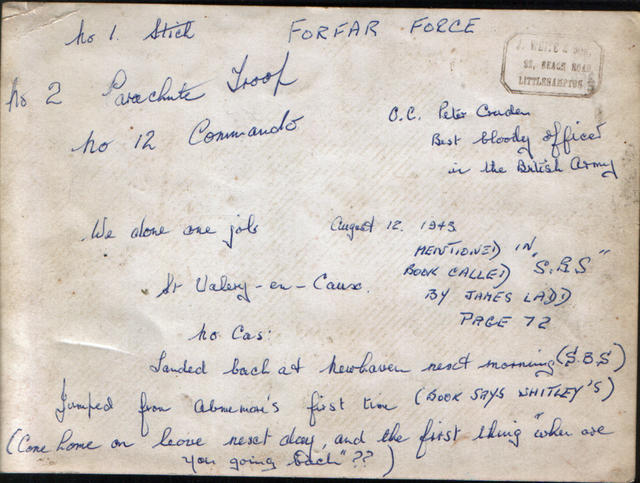 No 1. Stick FORFAR FORCE
J. WHITE & SON,
22, BEACH ROAD
LITTLEHAMPTON
No 2 Parachute Troop
No 12 Commando
O.C. Peter
Best bloody officer
in the British Army
We done one job August 12. 1943
MENTIONED IN
BOOK CALLED "S.B.S"
BY JAMES LADD
PAGE 72
St Valery-en-Caux.
No Cas:
Landed back at Newhaven next morning (S.B.S)
Jumped from Albemarle's first time (BOOK SAYS WHITLEY'S)
(Come home on leave next day, and the first thing "when are
you going back"??)